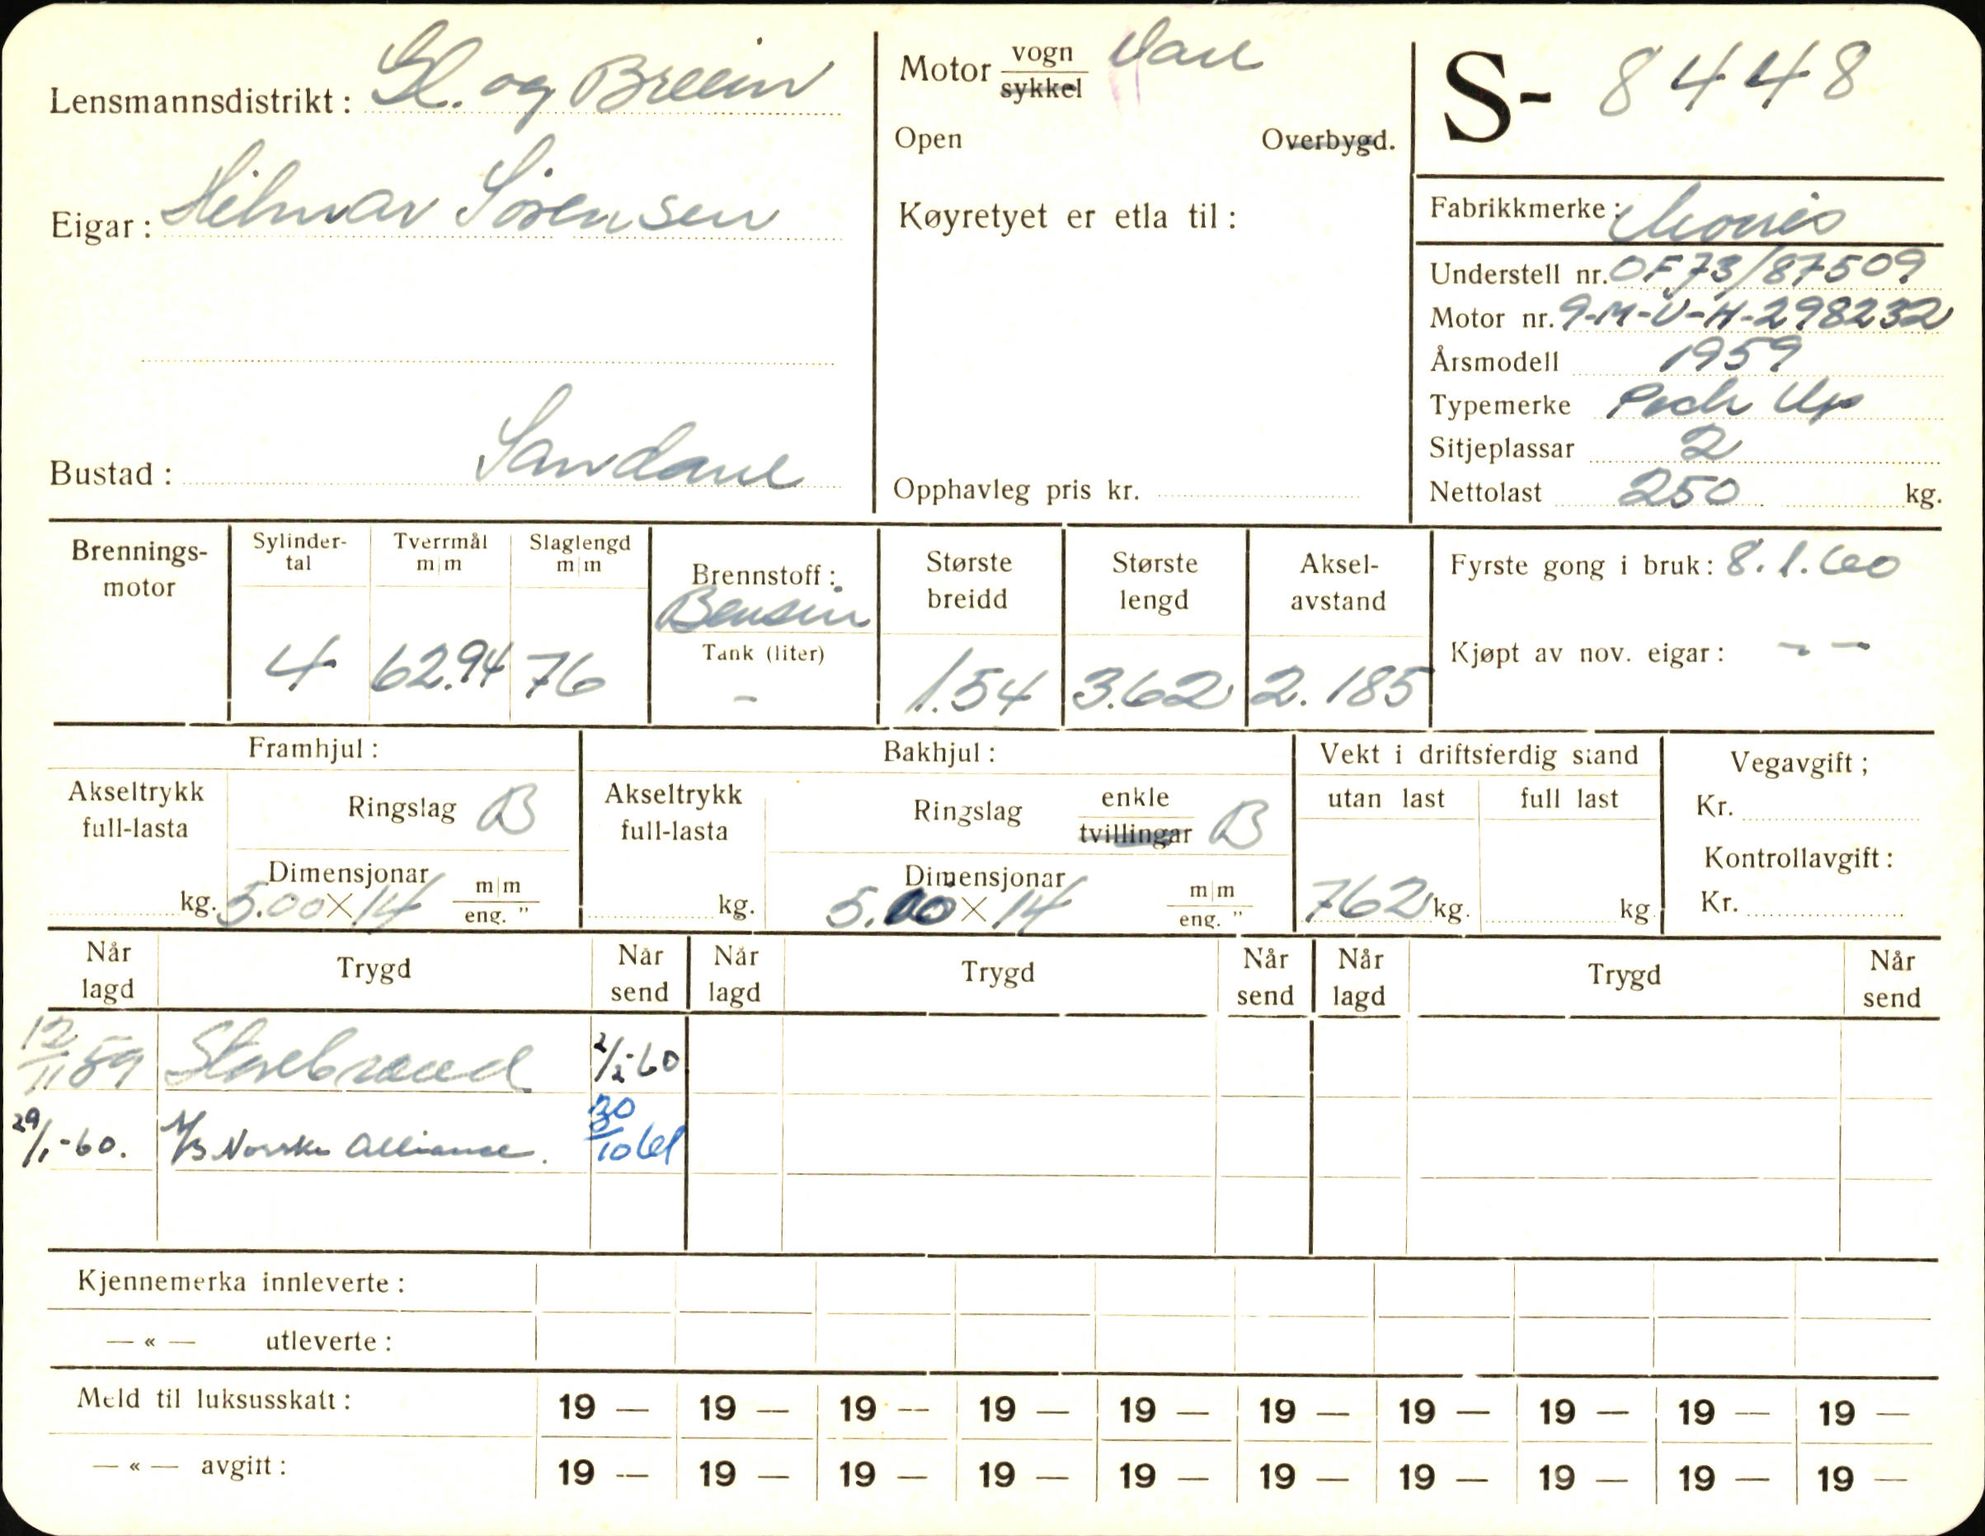 Lensmannsdistrikt: Gl. og Breim
Eigar: Hilmar Sörensen
Bustad: Sandane
Motor vogn
sykkel Vare
Open Overbygd.
Køyretyet er etla til:
Opphavleg pris kr.
S- 8448
Fabrikkmerke: Morris
Understell nr. OF73/87509
Motor nr. 9-M-U-H-298232
Årsmodell 1959
Typemerke Pick Up
Sitjeplassar 2
Nettolast 250 kg.
Brennings-
motor
Sylinder-
tal
4
Tverrmål
m|m
62.94
Slaglengd
m|m
76
Brennstoff:
Bensin
Tank (liter)
-
Største
breidd
1.54
Største
lengd
3.62
Aksel-
avstand
2.185
Fyrste gong i bruk: 8.1.60
Kjøpt av nov. eigar: - -
Framhjul:
Akseltrykk
full-lasta
kg.
Ringslag B
Dimensjonar
5.00 x 14 m|m
eng. "
Bakhjul:
Akseltrykk
full-lasta
kg.
Ringslag enkle
tvillingar B
Dimensjonar
5.00 x 14 m|m
eng. "
Vekt i driftsferdig stand
utan last full last
762 kg. kg
Vegavgift;
Kr.
Kontrollavgift:
Kr.
Når
lagd Trygd Når
send Når
lagd Trygd Når
send Når
lagd Trygd Når
send
12/11 59 Storebrand 2/2-60
29/1-60. A/S Norske Alliance. 30/10 61
Kjennemerka innleverte:
— « — utleverte:
Meld til luksusskatt: 19 — 19 — 19 — 19 — 19 — 19 — 19 — 19 — 19 — 19 —
— « — avgift: 19 — 19 — 19 — 19 — 19 — 19 — 19 — 19 — 19 — 19 —